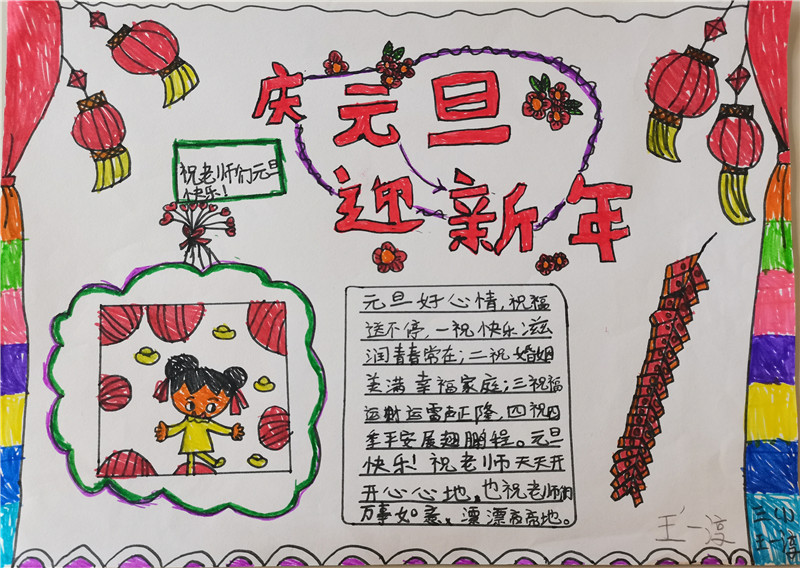 庆元旦
迎新年
祝老师们元旦
快乐!
元旦好心情,祝福
送不停,一祝快乐:滋
润青春常在;二祝婚姻
美满幸福家庭;三祝福
运财运雷声正隆,四祝四
季平安展翅鹏程。元旦
快乐!祝老师天天开
开心心地,也祝老师们
万事如意、漂漂亮亮地。
王一淳
三(1)
王一淳